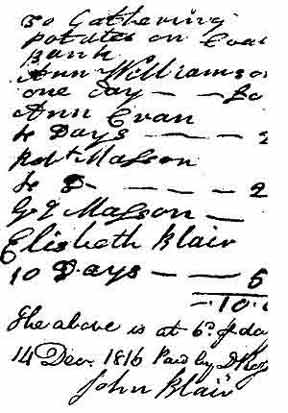 To Gathering
potatoes on
Bank
Ann Williamso
one day — —
Ann Evan
4 Days — — — 2
Robt Masson
4 D— — — — 2
Masson —
Elisbeth Blair
10 Days — — 5
- 10.
The above is at 6d pr da
14 Decr. 1816 Paid by
John Blair